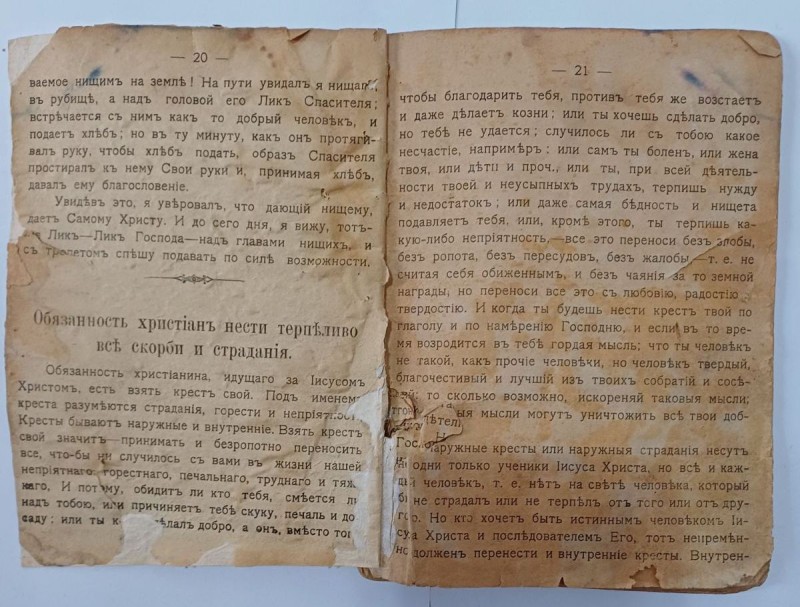 — 20 —
ваемое нищимъ на землѣ! На пути увидалъ я нищаго
въ рубищѣ, а надъ головой его Ликъ Спасителя;
встрѣчается съ нимъ какъ то добрый человѣкъ, и
подаетъ хлѣбъ; но въ ту минуту, какъ онъ протяги-
валъ руку, чтобы хлѣбъ подать, образъ Спасителя
простиралъ къ нему Свои руки и, принимая хлѣбъ,
давалъ ему благословеніе.
Увидѣвъ это, я увѣровалъ, что дающій нищему,
даетъ Самому Христу. И до сего дня, я вижу, тотъ-
Ликъ—Ликъ Господа—надъ главами нищихъ, и
съ трепетомъ спѣшу подавать по силѣ возможности.
Обязанность христіанъ нести терпѣливо
всѣ скорби и страданія.
Обязанность христіанина, идущаго за Іисусомъ
Христомъ, есть взять крестъ свой. Подъ именемъ
креста разумѣются страданія, горести и непріятности.
Кресты бываютъ наружные и внутренніе. Взять крестъ
свой значитъ—принимать и безропотно переносить
все, что-бы ни случилось съ вами въ жизни нашей
непріятнаго, горестнаго, печальнаго, труднаго и тяж-
каго, И потому, обидитъ ли кто тебя, смѣется ли
надъ тобою, или причиняетъ тебѣ скуку, печаль и до-
саду; или ты сдѣлалъ добро, а онъ, вмѣсто того
— 21 —
чтобы благодарить тебя, противъ тебя же возстаетъ
и даже дѣлаетъ козни; или ты хочешь сдѣлать добро,
но тебѣ не удается; случилось ли съ тобою какое
несчастіе, напримѣръ: или самъ ты боленъ, или жена
твоя, или дѣти и проч., или ты, при всей дѣятель-
ности твоей и неусыпныхъ трудахъ, терпишь нужду
и недостатокъ; или даже самая бѣдность и нищета
подавляетъ тебя, или, кромѣ этого, ты терпишь ка-
кую-либо непріятность,—все это переноси безъ злобы,
безъ ропота, безъ пересудовъ, безъ жалобы—т. е. не
считая себя обиженнымъ, и безъ чаянія за то земной
награды, но переноси все это съ любовію, радостію и
твердостію. И когда ты будешь нести крестъ твой по
глаголу и по намѣренію Господню, и если въ то вре-
мя возродится въ тебѣ гордая мысль; что ты человѣкъ
не такой, какъ прочіе человѣчи, но человѣкъ твердый,
благочестивый и лучшій изъ твоихъ собратій и сосѣ-
дей; то сколько возможно, искореняй таковыя мысли;
мысли могутъ уничтожить всѣ твои доб-
дѣтели
Наружные кресты или наружныя страданія несутъ
не одни только ученики Іисуса Христа, но всѣ и каж-
дый человѣкъ, т. е. нѣтъ на свѣтѣ человѣка, который
бы не страдалъ или не терпѣлъ отъ того или отъ дру-
гого. Но кто хочетъ быть истиннымъ человѣкомъ Іи-
суса Христа и послѣдователемъ Его, тотъ непремѣн-
но долженъ перенести и внутренніе кресты. Внутрен-